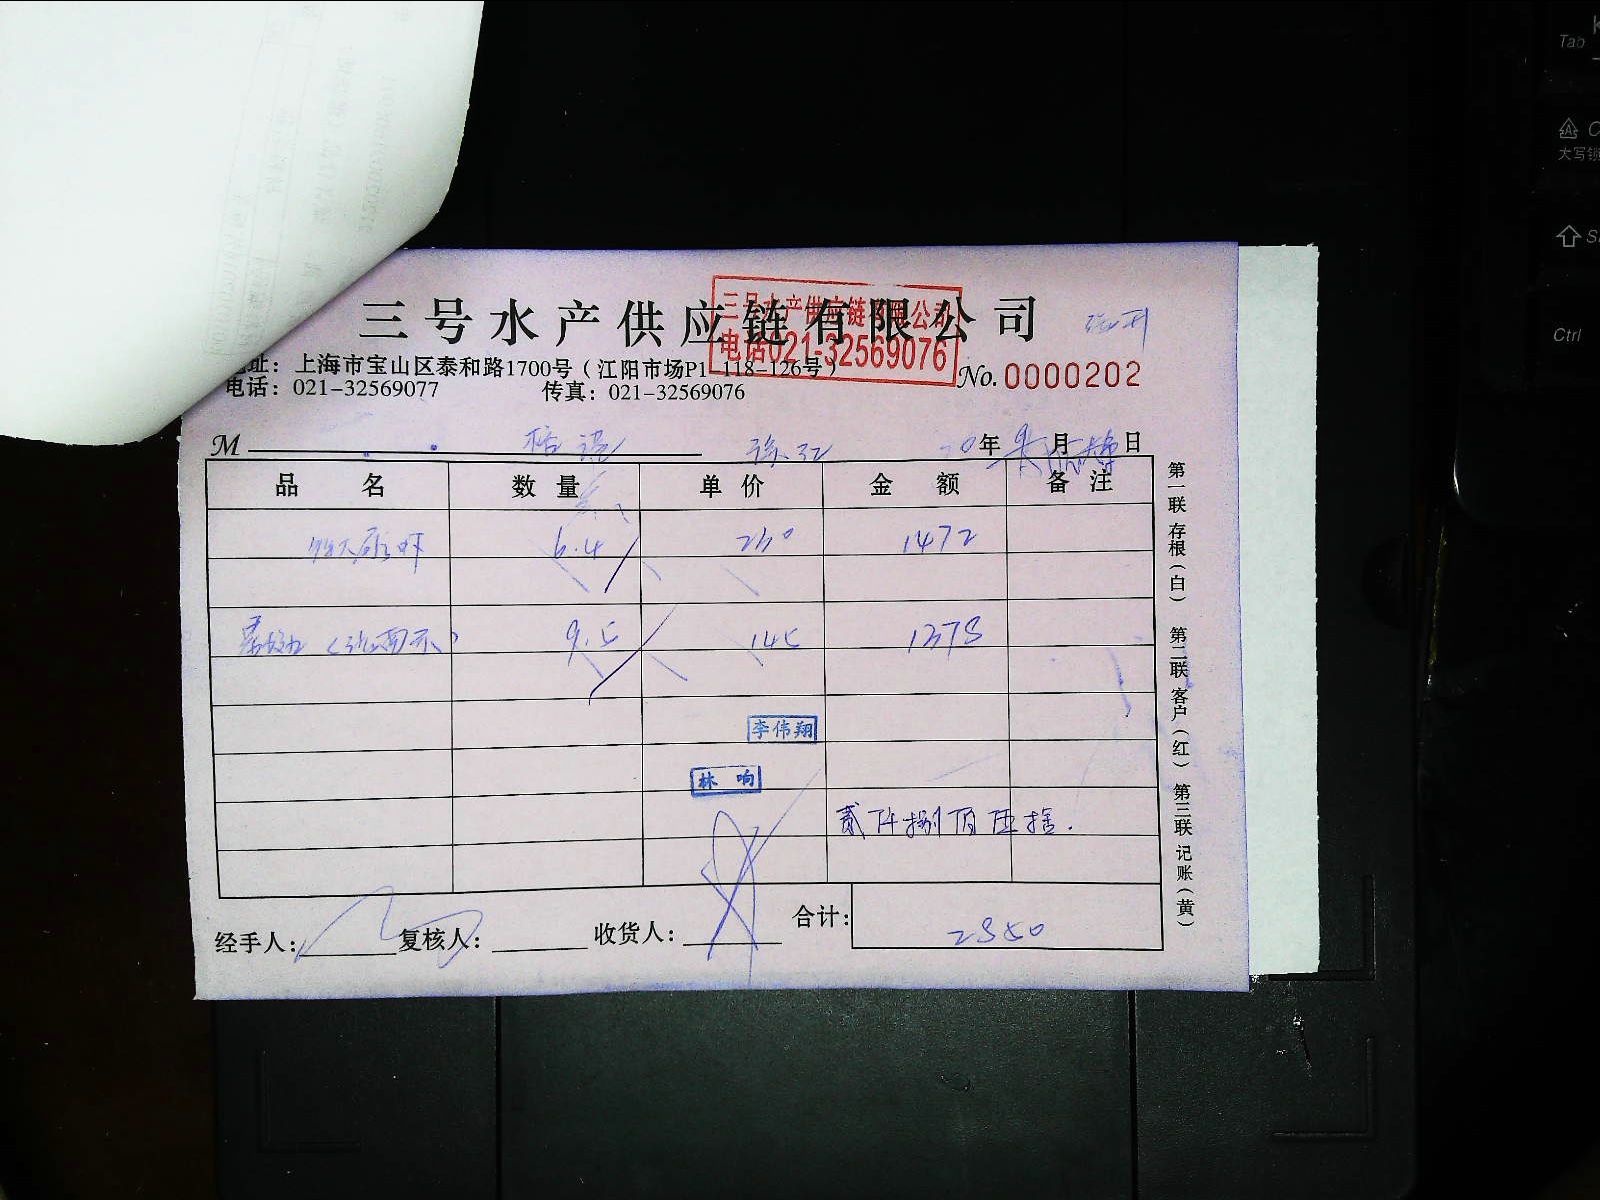 三号水产供应链有限公司
三号水产供应链有限公司
电话021-32569076
址：上海市宝山区泰和路1700号（江阳市场P1-118-126号）
电话：021-32569077 传真：021-32569076
No. 0000202
M 年 月 日
品名 数量 单价 金额 备注
6.4 230 1472
9.5 145 1378
李伟翔
林响
贰仟捌佰伍拾.
合计： 2850
经手人： 复核人： 收货人：
第一联 存根（白） 第二联 客户（红） 第三联 记账（黄）
Tab
大写锁
Ctrl